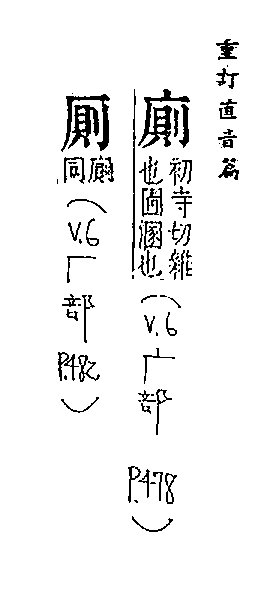 重訂直音篇
廁 初寺切雜也圊溷也 (V.6 广部 P.478)
厠 廁同 (V.6 厂部 P.482)